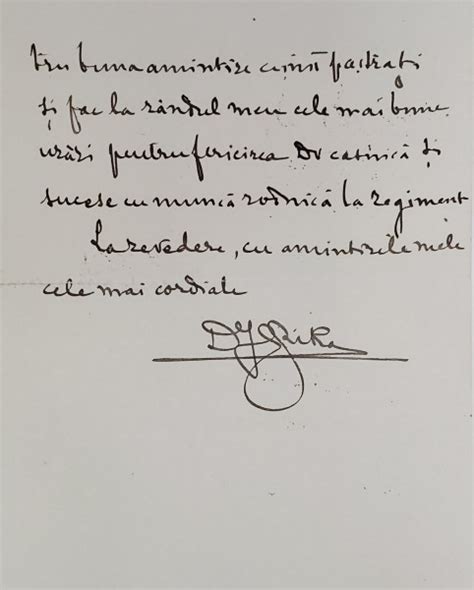 tru buna amintire ce-mi păstrați
și fac la rândul meu cele mai bune
urări pentru fericirea Dv casnică și
succes cu muncă rodnică la regiment
La revedere, cu amintirile mele
cele mai cordiale